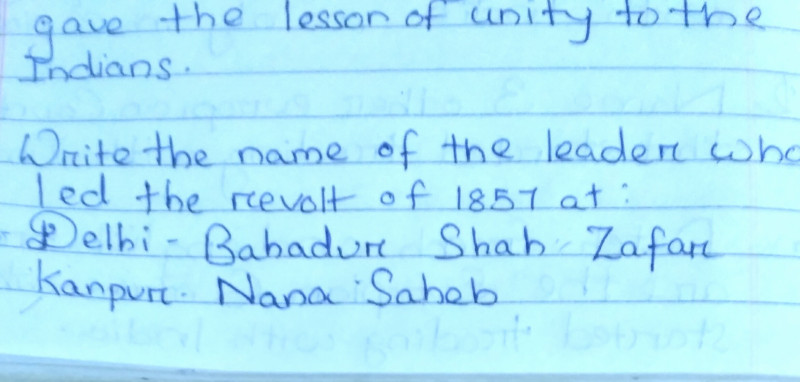 gave the lesson of unity to the
Indians.
Write the name of the leader who
led the revolt of 1857 at :
Delhi - Bahadur Shah Zafar
Kanpur. Nana Saheb